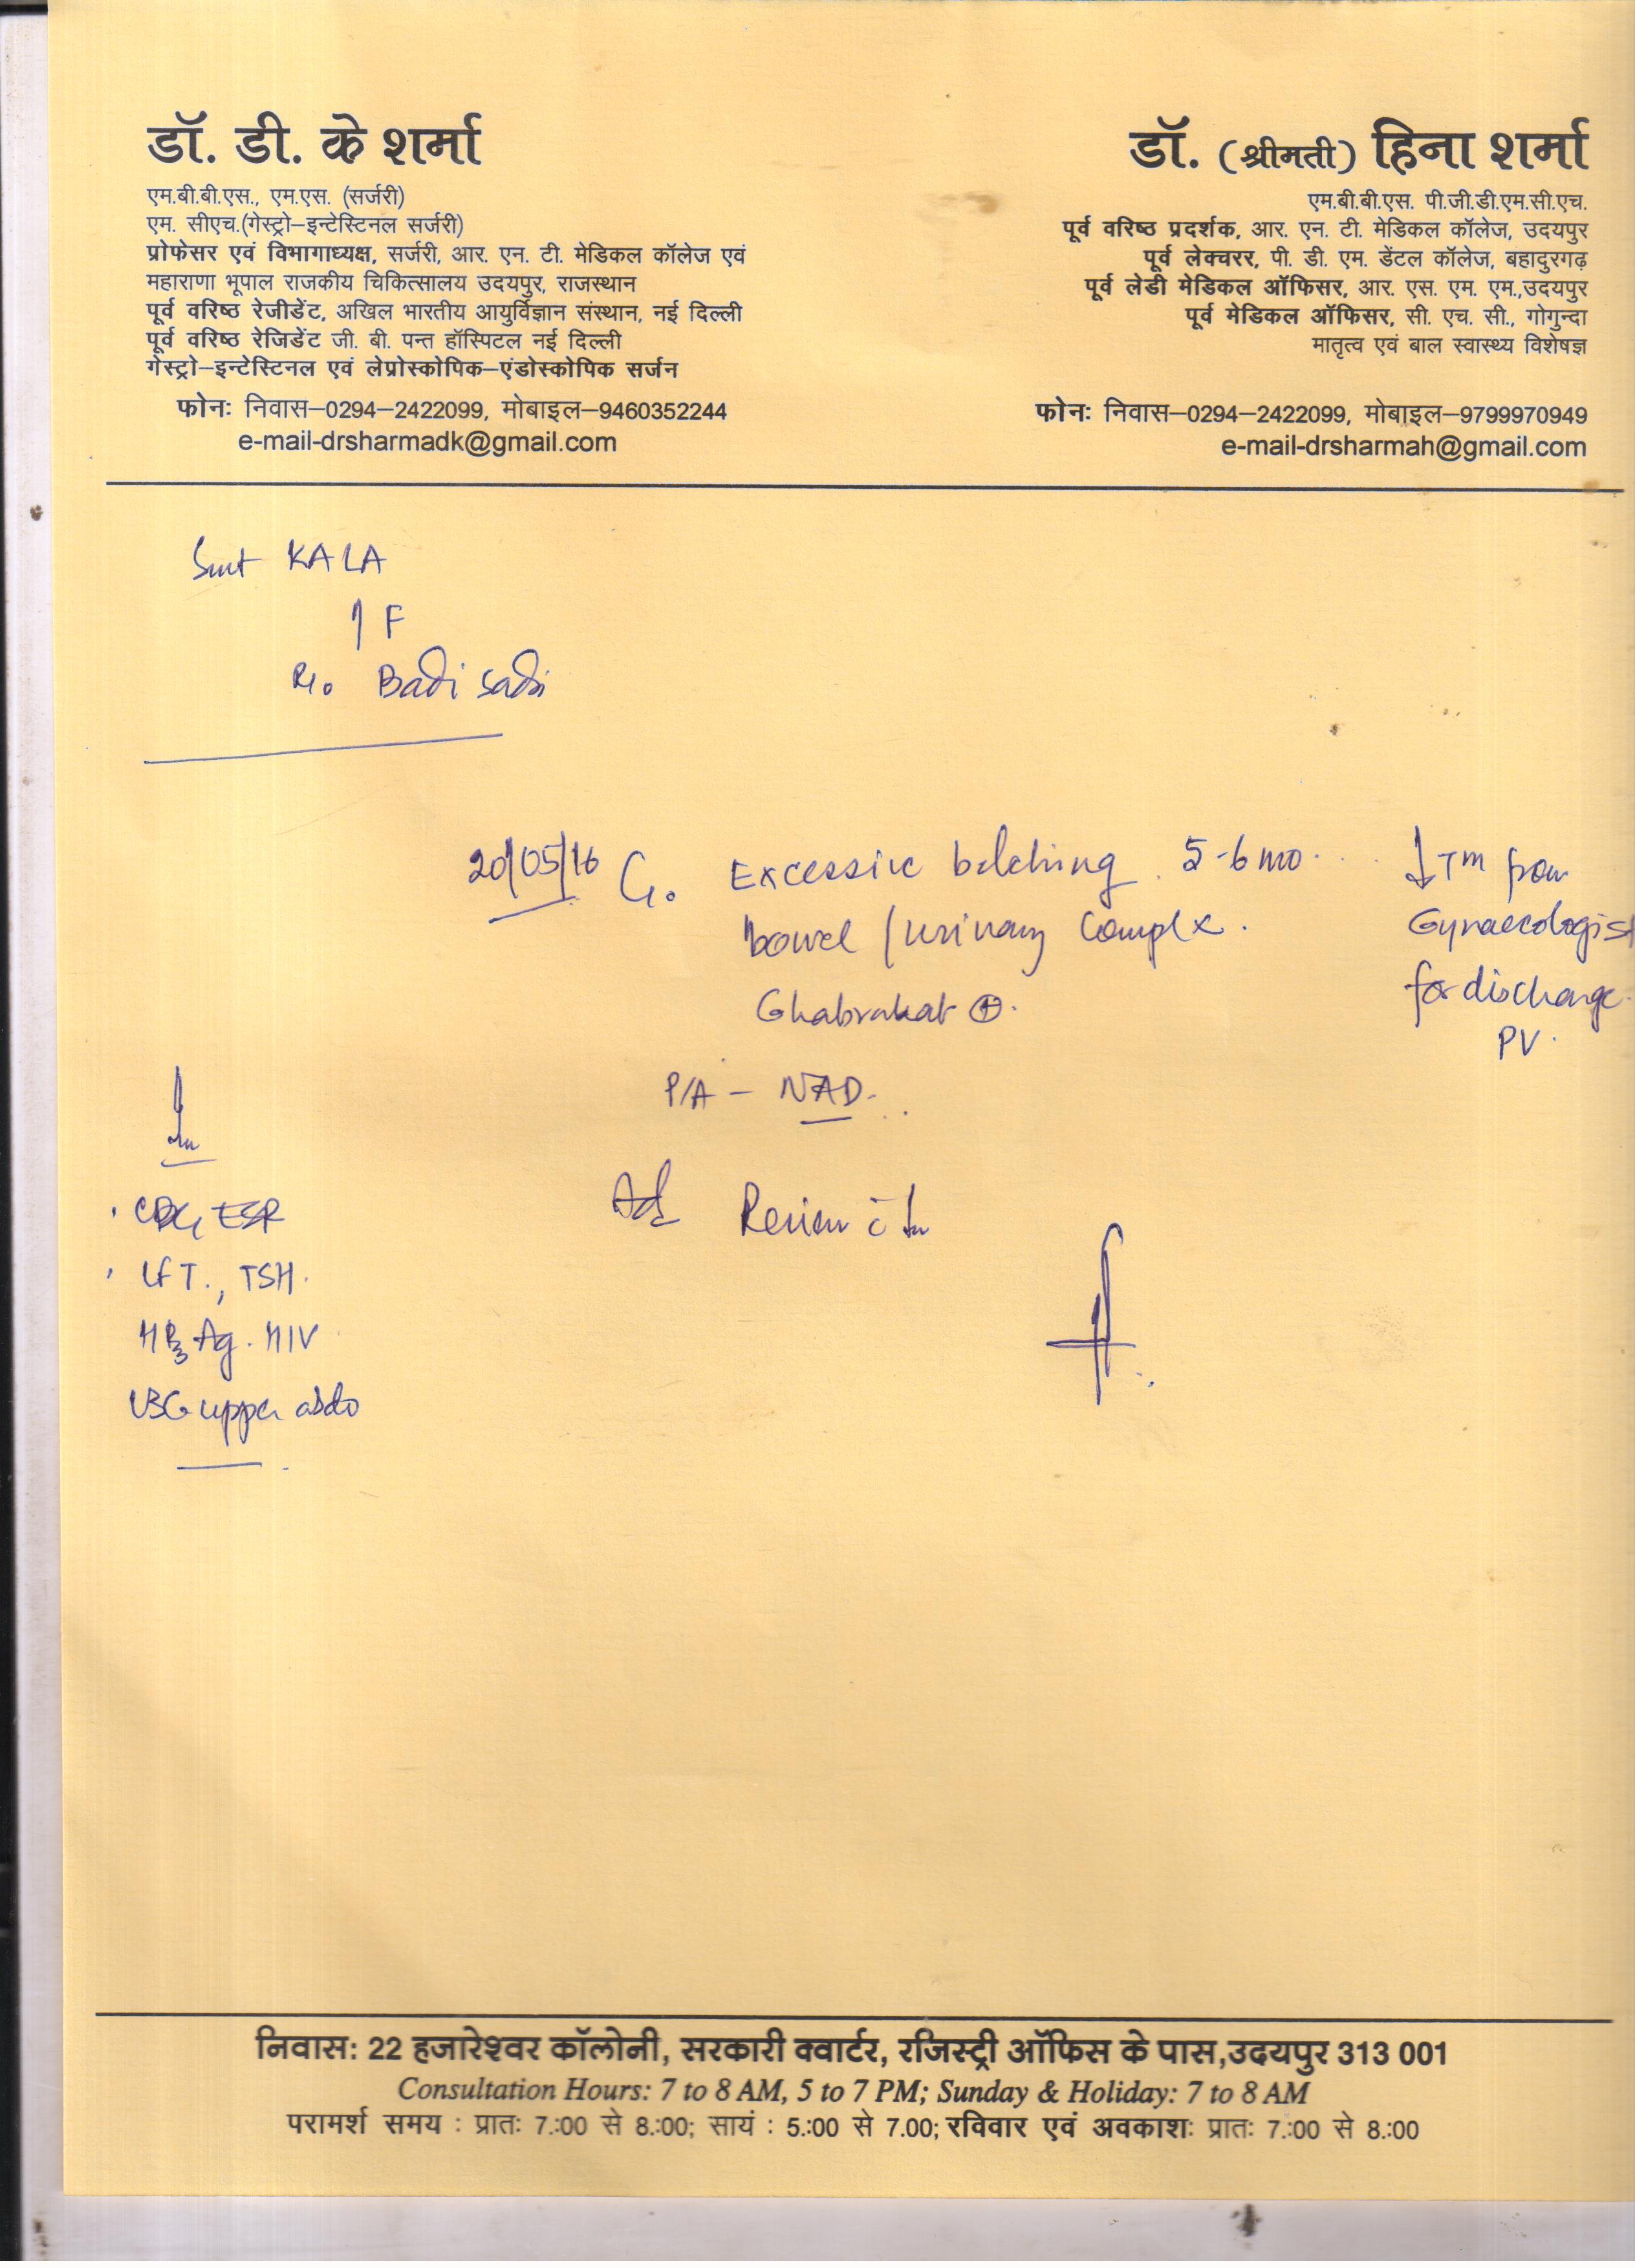 डॉ. डी. के शर्मा
एम.बी.बी.एस., एम.एस. (सर्जरी)
एम. सीएच.(गेस्ट्रो–इन्टेस्टिनल सर्जरी)
प्रोफेसर एवं विभागाध्यक्ष, सर्जरी, आर. एन. टी. मेडिकल कॉलेज एवं
महाराणा भूपाल राजकीय चिकित्सालय उदयपुर, राजस्थान
पूर्व वरिष्ठ रेजीडेंट, अखिल भारतीय आयुर्विज्ञान संस्थान, नई दिल्ली
पूर्व वरिष्ठ रेजिडेंट जी. बी. पन्त हॉस्पिटल नई दिल्ली
गेस्ट्रो–इन्टेस्टिनल एवं लेप्रोस्कोपिक–एंडोस्कोपिक सर्जन
फोनः निवास–0294–2422099, मोबाइल–9460352244
e-mail-drsharmadk@gmail.com
डॉ. (श्रीमती) हिना शर्मा
एम.बी.बी.एस. पी.जी.डी.एम.सी.एच.
पूर्व वरिष्ठ प्रदर्शक, आर. एन. टी. मेडिकल कॉलेज, उदयपुर
पूर्व लेक्चरर, पी. डी. एम. डेंटल कॉलेज, बहादुरगढ़
पूर्व लेडी मेडिकल ऑफिसर, आर. एस. एम. एम.,उदयपुर
पूर्व मेडिकल ऑफिसर, सी. एच. सी., गोगुन्दा
मातृत्व एवं बाल स्वास्थ्य विशेषज्ञ
फोनः निवास–0294–2422099, मोबाइल–9799970949
e-mail-drsharmah@gmail.com
Smt KALA
F
R/o Badi Sadri
20/05/16 C/o Excessive belching 5-6 mo.
bowel / urinary
Ghabrahat ⊕.
↓ Tm from
Gynaecologist
for discharge
PV.
P/A – NAD.
Adv Review c̄ In
In
CBC, ESR
LFT., TSH.
HBsAg. HIV
USG upper abdo
निवासः 22 हजारेश्वर कॉलोनी, सरकारी क्वार्टर, रजिस्ट्री ऑफिस के पास,उदयपुर 313 001
Consultation Hours: 7 to 8 AM, 5 to 7 PM; Sunday & Holiday: 7 to 8 AM
परामर्श समय : प्रातः 7.:00 से 8.:00; सायं : 5.:00 से 7.00; रविवार एवं अवकाशः प्रातः 7.:00 से 8.:00